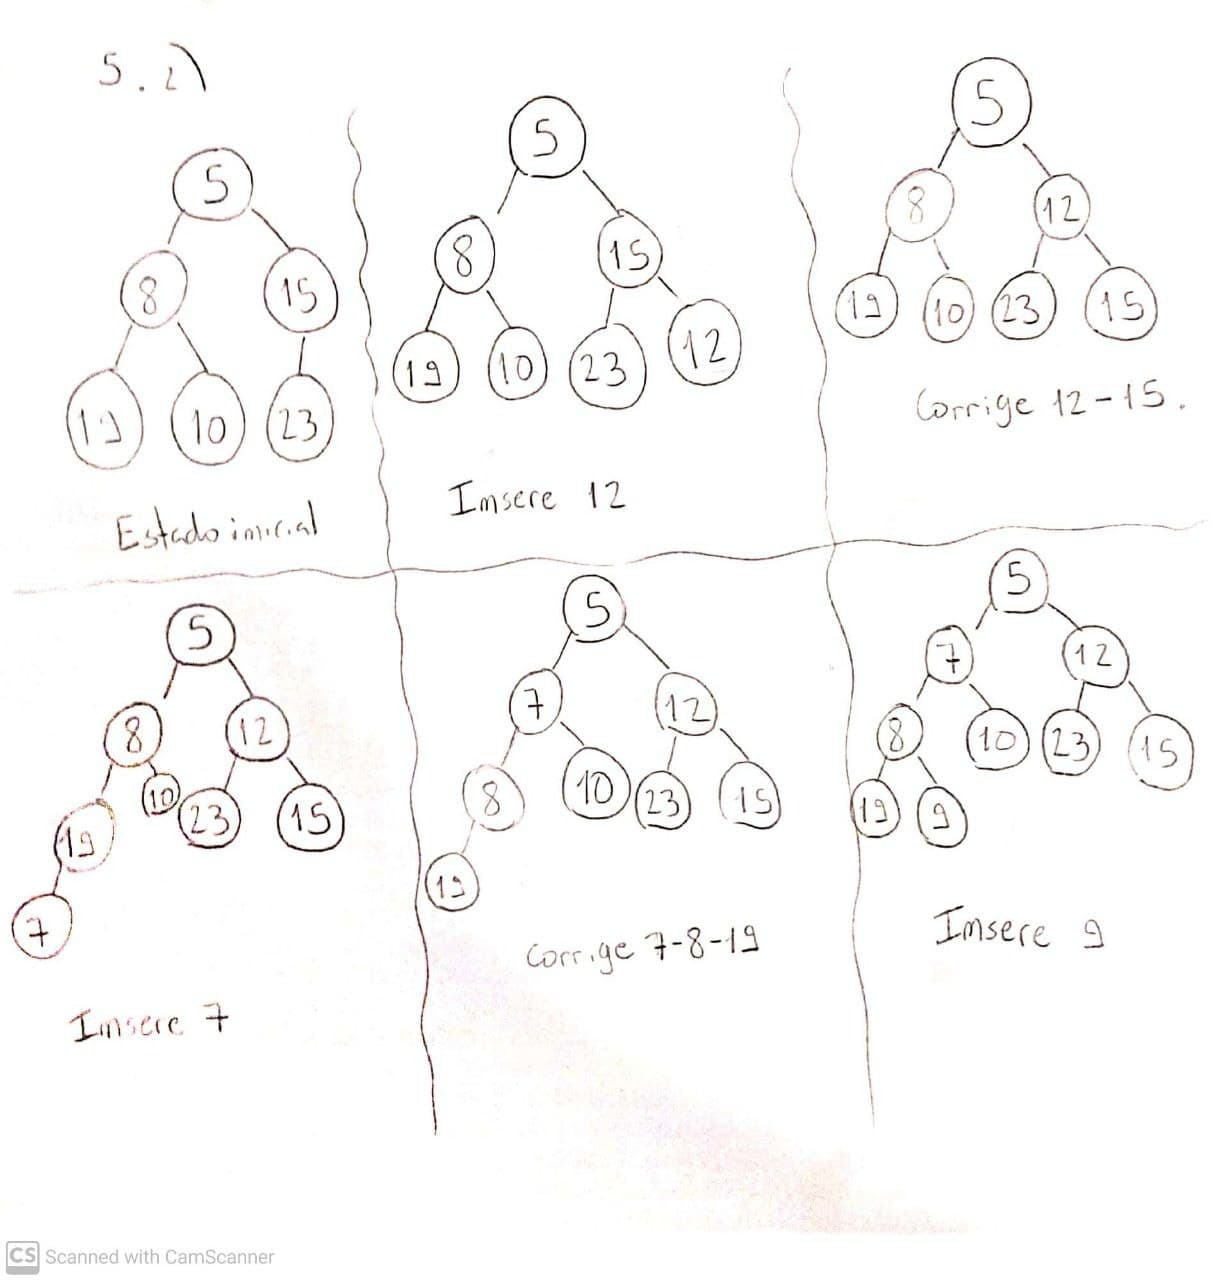 5. 2)
5
8 15
19 10 23
Estado inicial
5
8 15
19 10 23 12
Insere 12
5
8 12
19 10 23 15
Corrige 12-15.
5
8 12
10 23 15
19
7
Insere 7
5
7 12
8 10 23 15
19
Corrige 7-8-19
5
7 12
8 10 23 15
19 9
Insere 9
CS Scanned with CamScanner